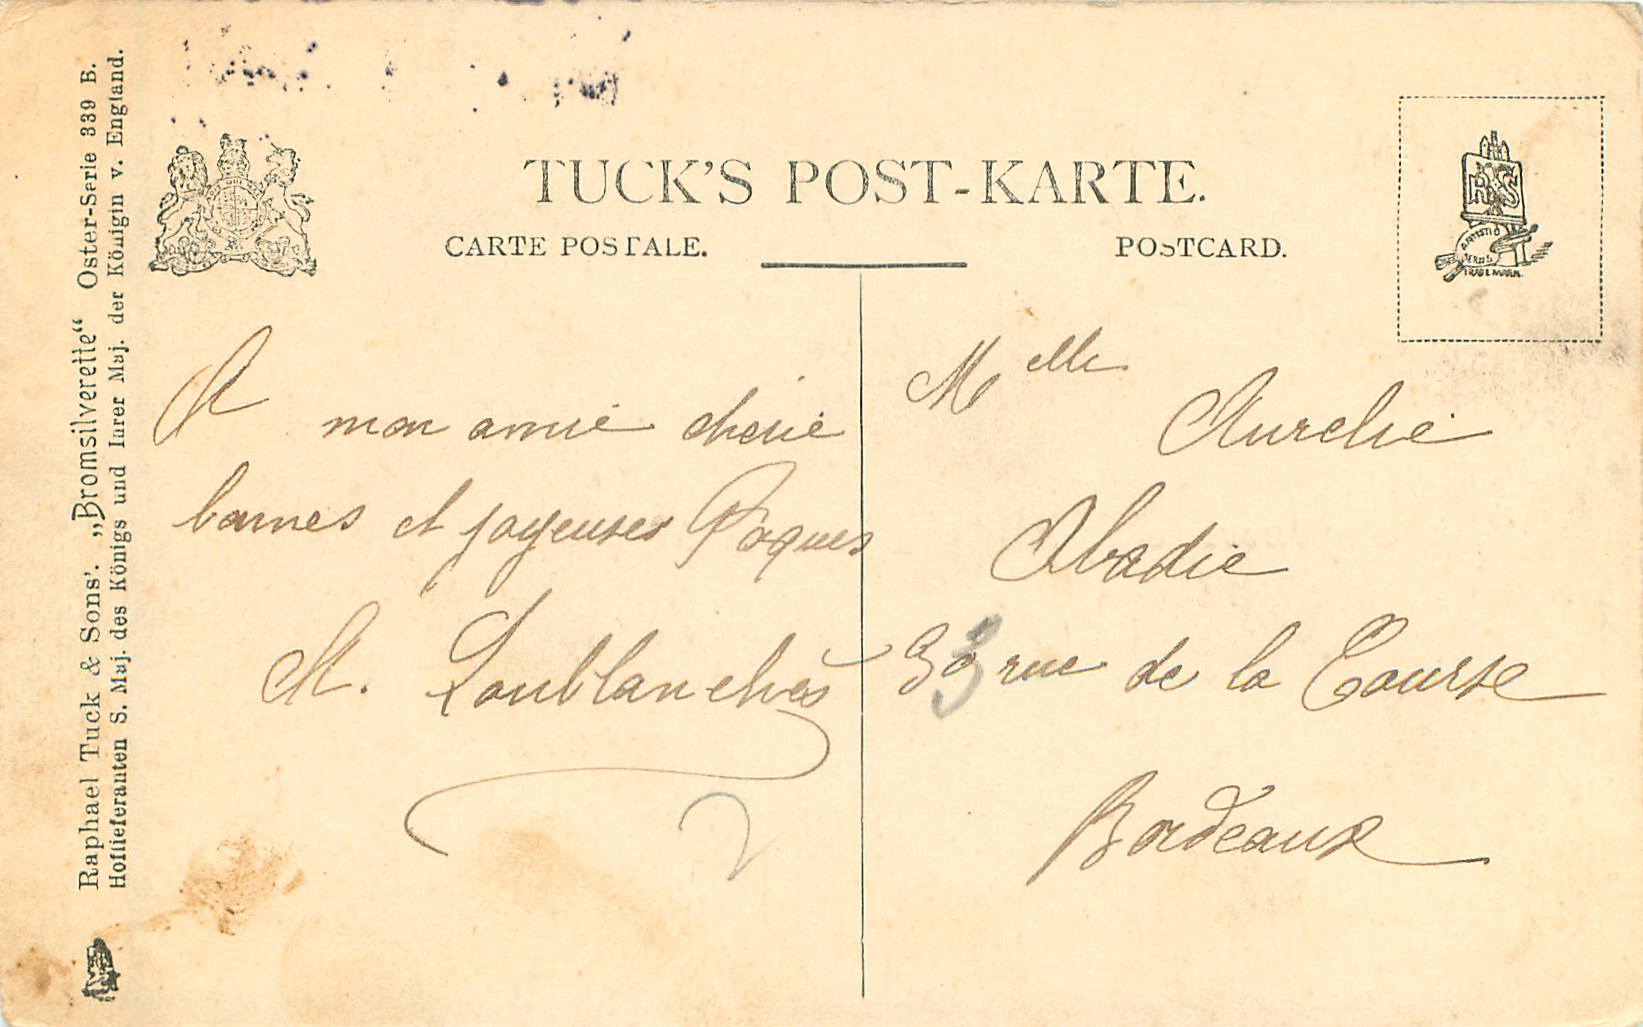 Raphael Tuck & Sons'. „Bromsilverette“ Oster-Serie 339 B.
Hoflieferanten S. Maj. des Königs und Ihrer Maj. der Königin v. England.
TUCK'S POST-KARTE.
CARTE POSTALE.
POSTCARD.
ARTISTIC
SERIES
TRADE MARK.
A mon amie cherie
bonnes et joyeuses Paques
M. Loublanchès
2
Melle Aurelie
Abadie
rue de la Course
Bordeaux